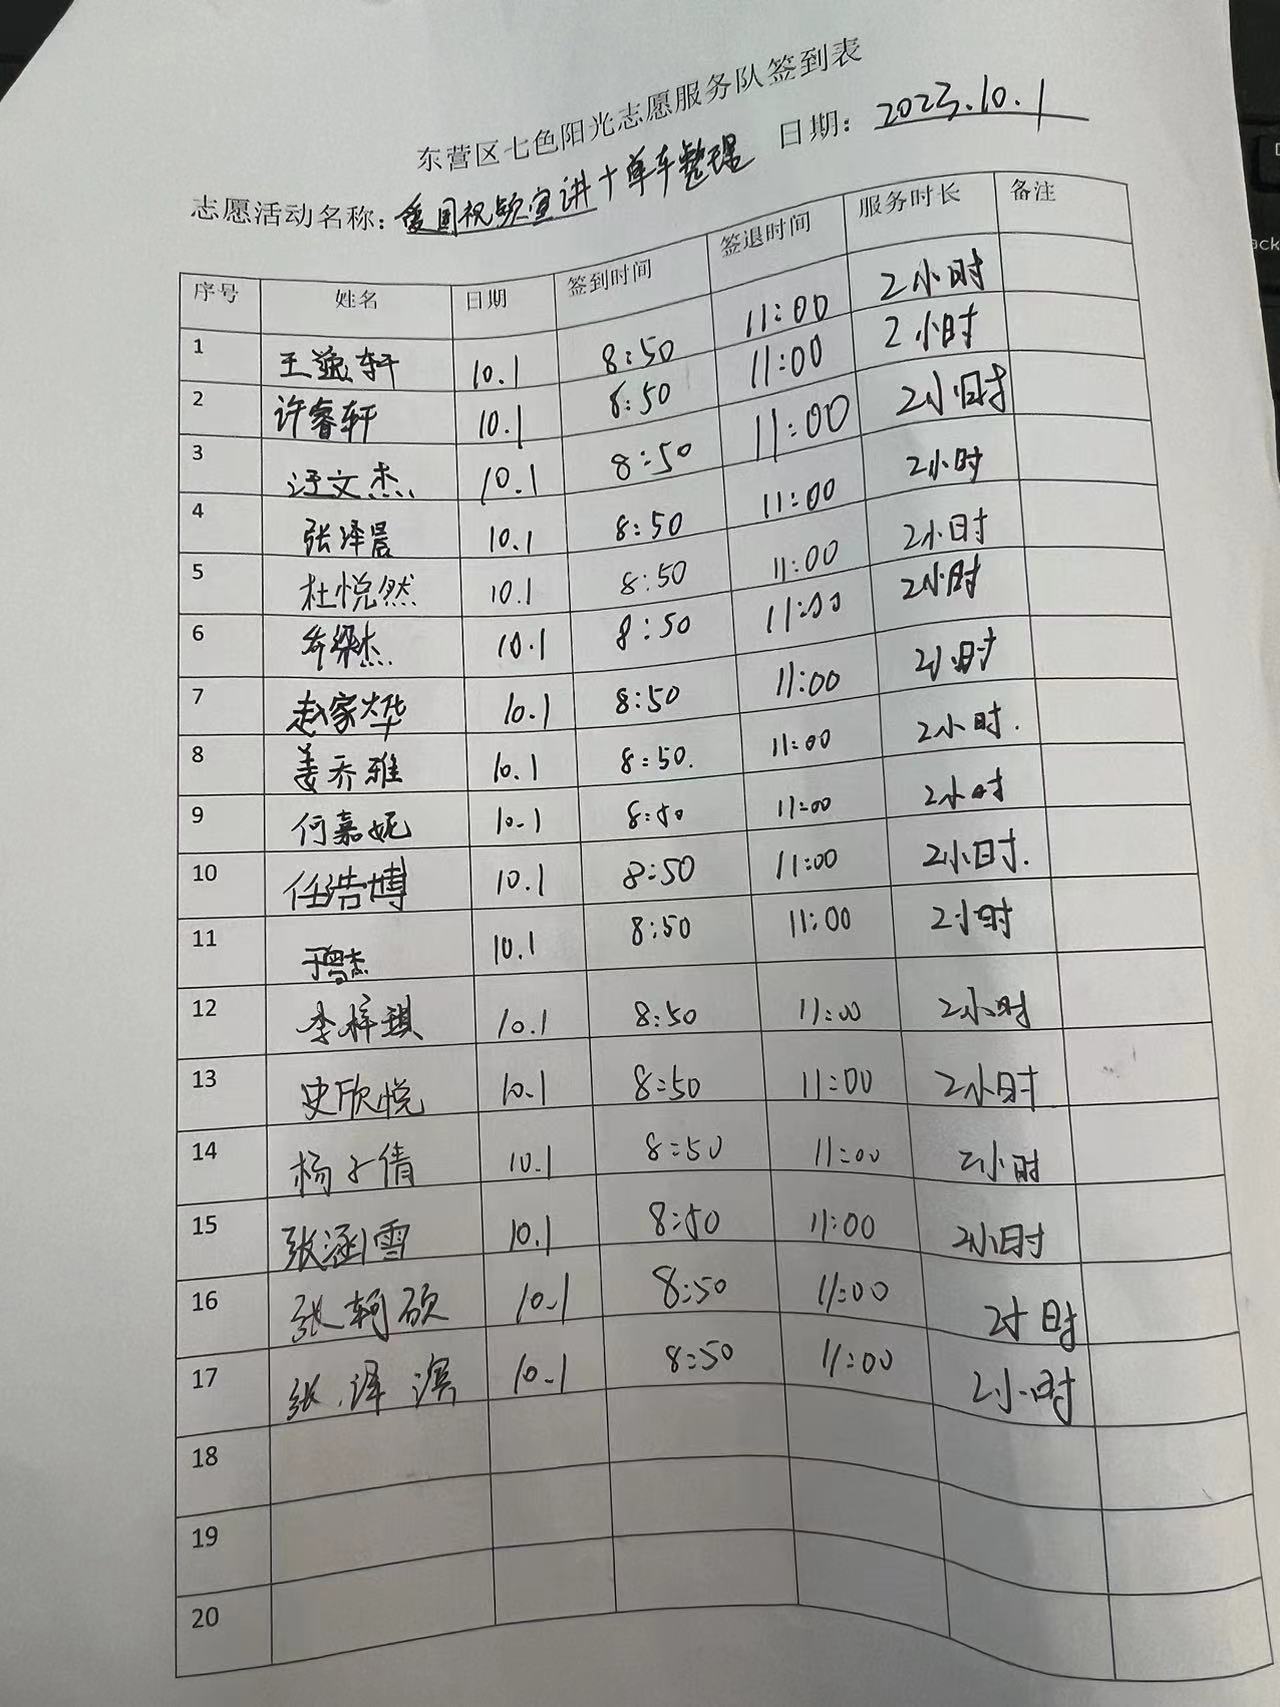 东营区七色阳光志愿服务队签到表
志愿活动名称：爱国视频宣讲+单车整理 日期：2023.10.1
序号 姓名 日期 签到时间 签退时间 服务时长 备注
1 王 轩 10.1 8:50 11:00 2小时
2 许睿轩 10.1 8:50 11:00 2小时
3 汪文杰 10.1 8:50 11:00 2小时
4 张泽晨 10.1 8:50 11:00 2小时
5 杜悦然 10.1 8:50 11:00 2小时
6 10.1 8:50 11:00 2小时
7 赵家烨 10.1 8:50 11:00 2小时
8 姜乔雅 10.1 8:50. 11:00 2小时.
9 何嘉妮 10.1 8:50 11:00 2小时
10 任浩博 10.1 8:50 11:00 2小时.
11 于曾杰 10.1 8:50 11:00 2小时
12 李梓琪 10.1 8:50 11:00 2小时
13 史欣悦 10.1 8:50 11:00 2小时
14 杨子倩 10.1 8:50 11:00 2小时
15 张涵雪 10.1 8:50 11:00 2小时
16 张轲硕 10.1 8:50 11:00 2小时
17 张泽滨 10.1 8:50 11:00 2小时
18
19
20